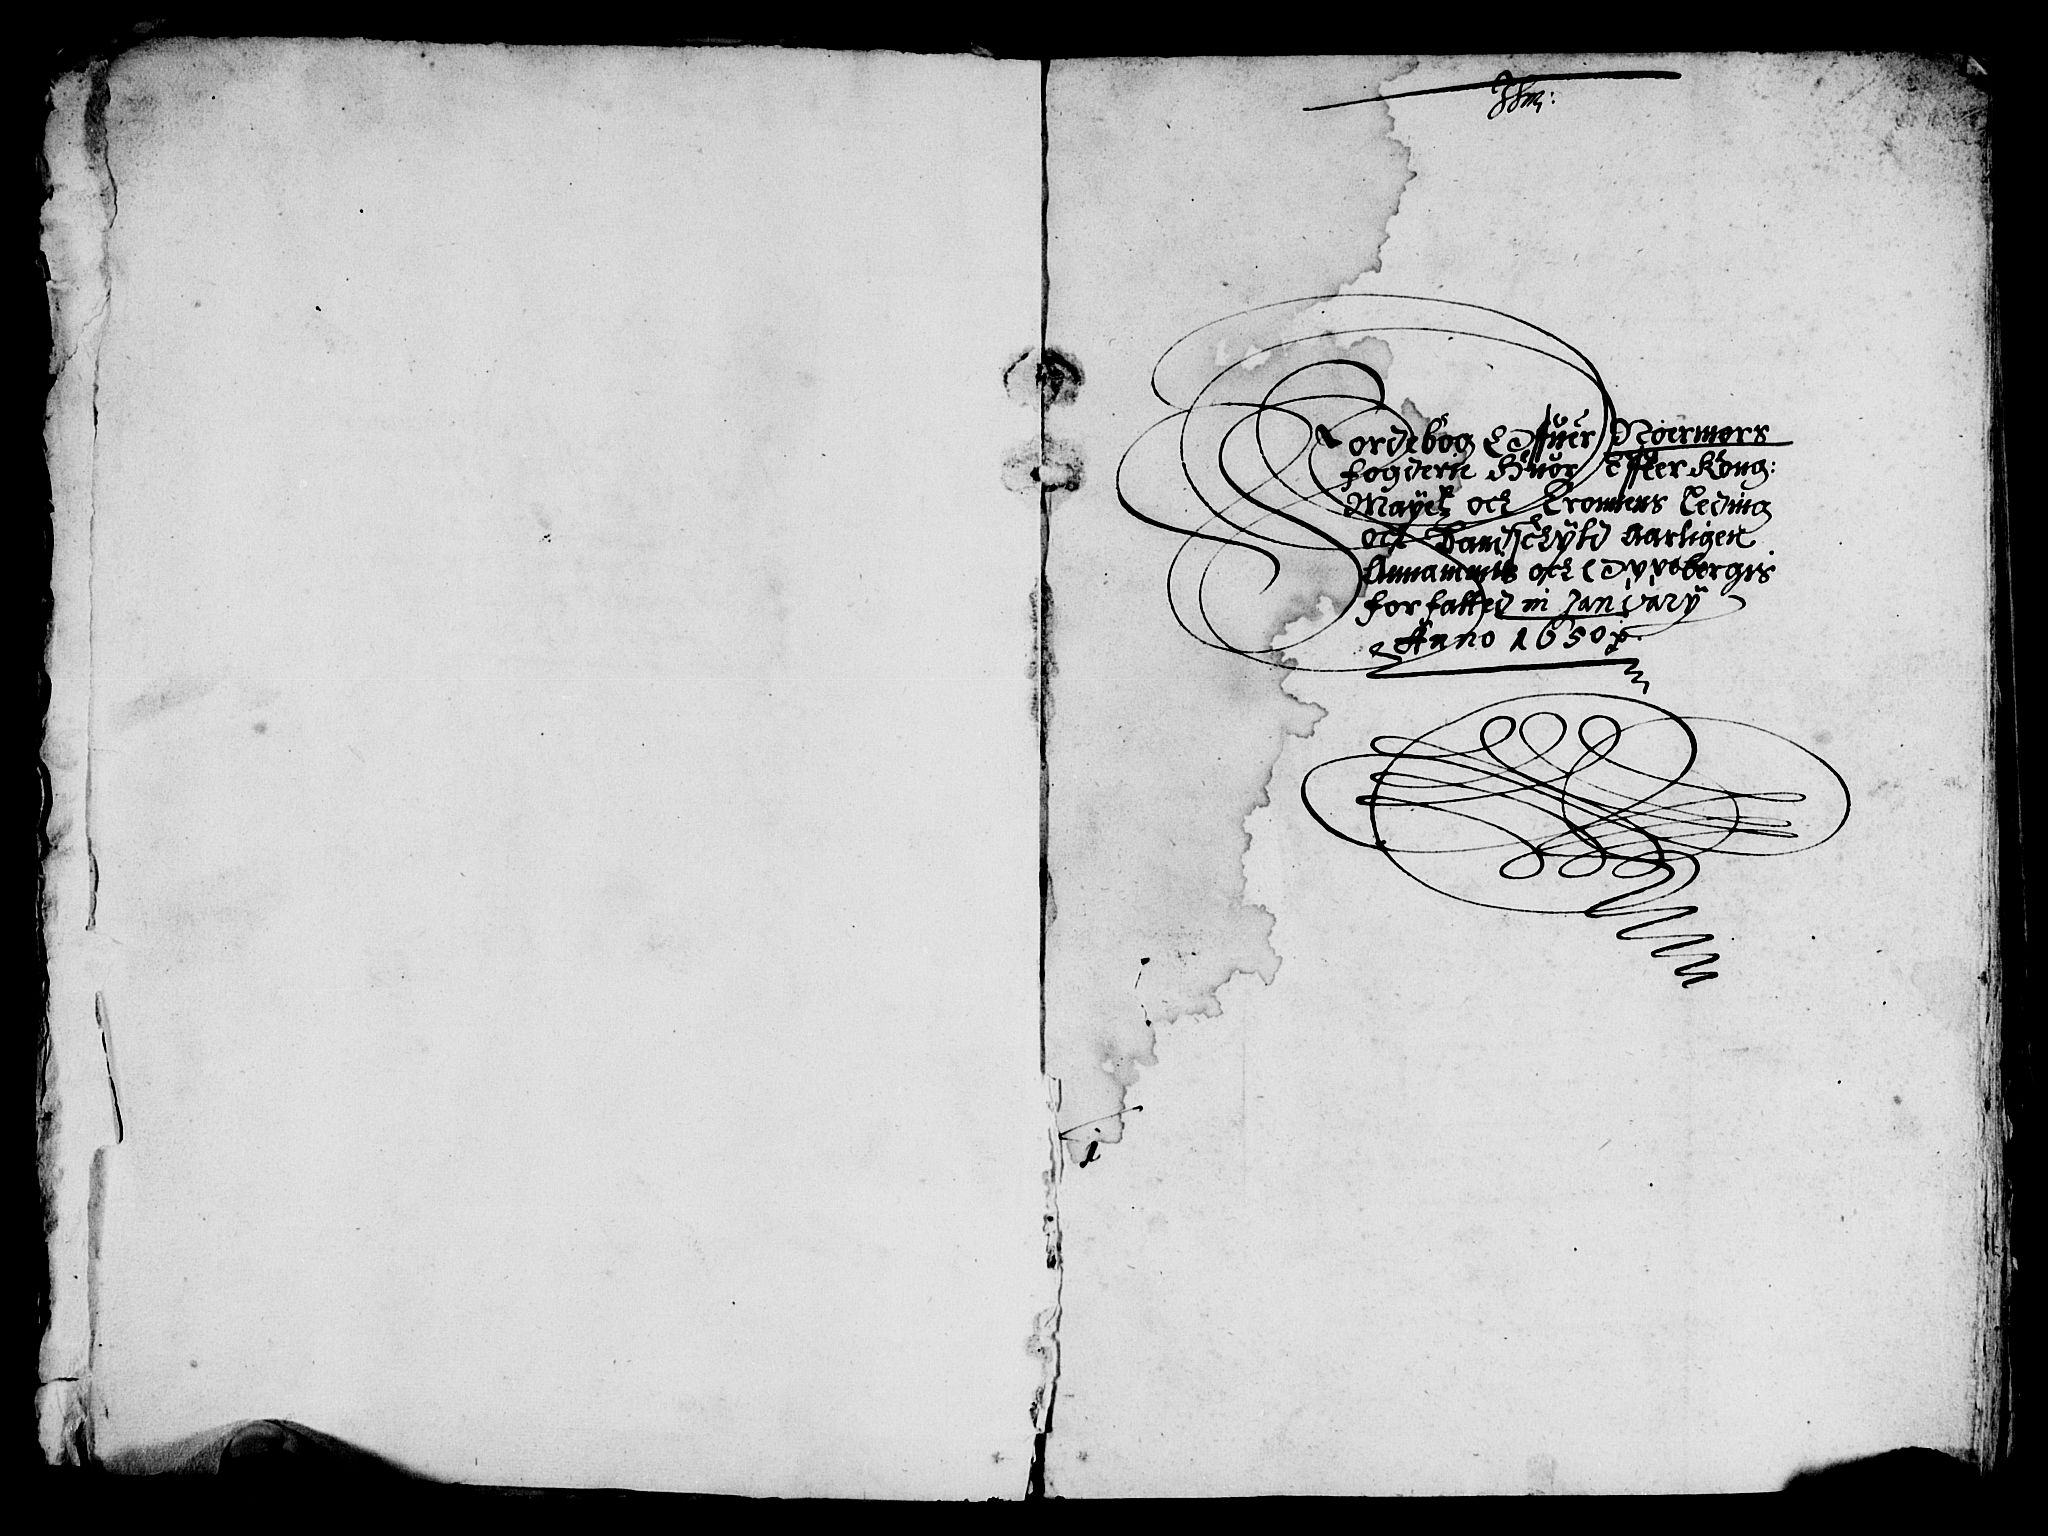 Jordebog Offuer Noermørs
fogderie Huor Effter Kong:
Mayetz ock Cronens Leding
ock Landschyld Aarligen
Annammis ock Opeberges
forfatted in January
Anno 1650
1